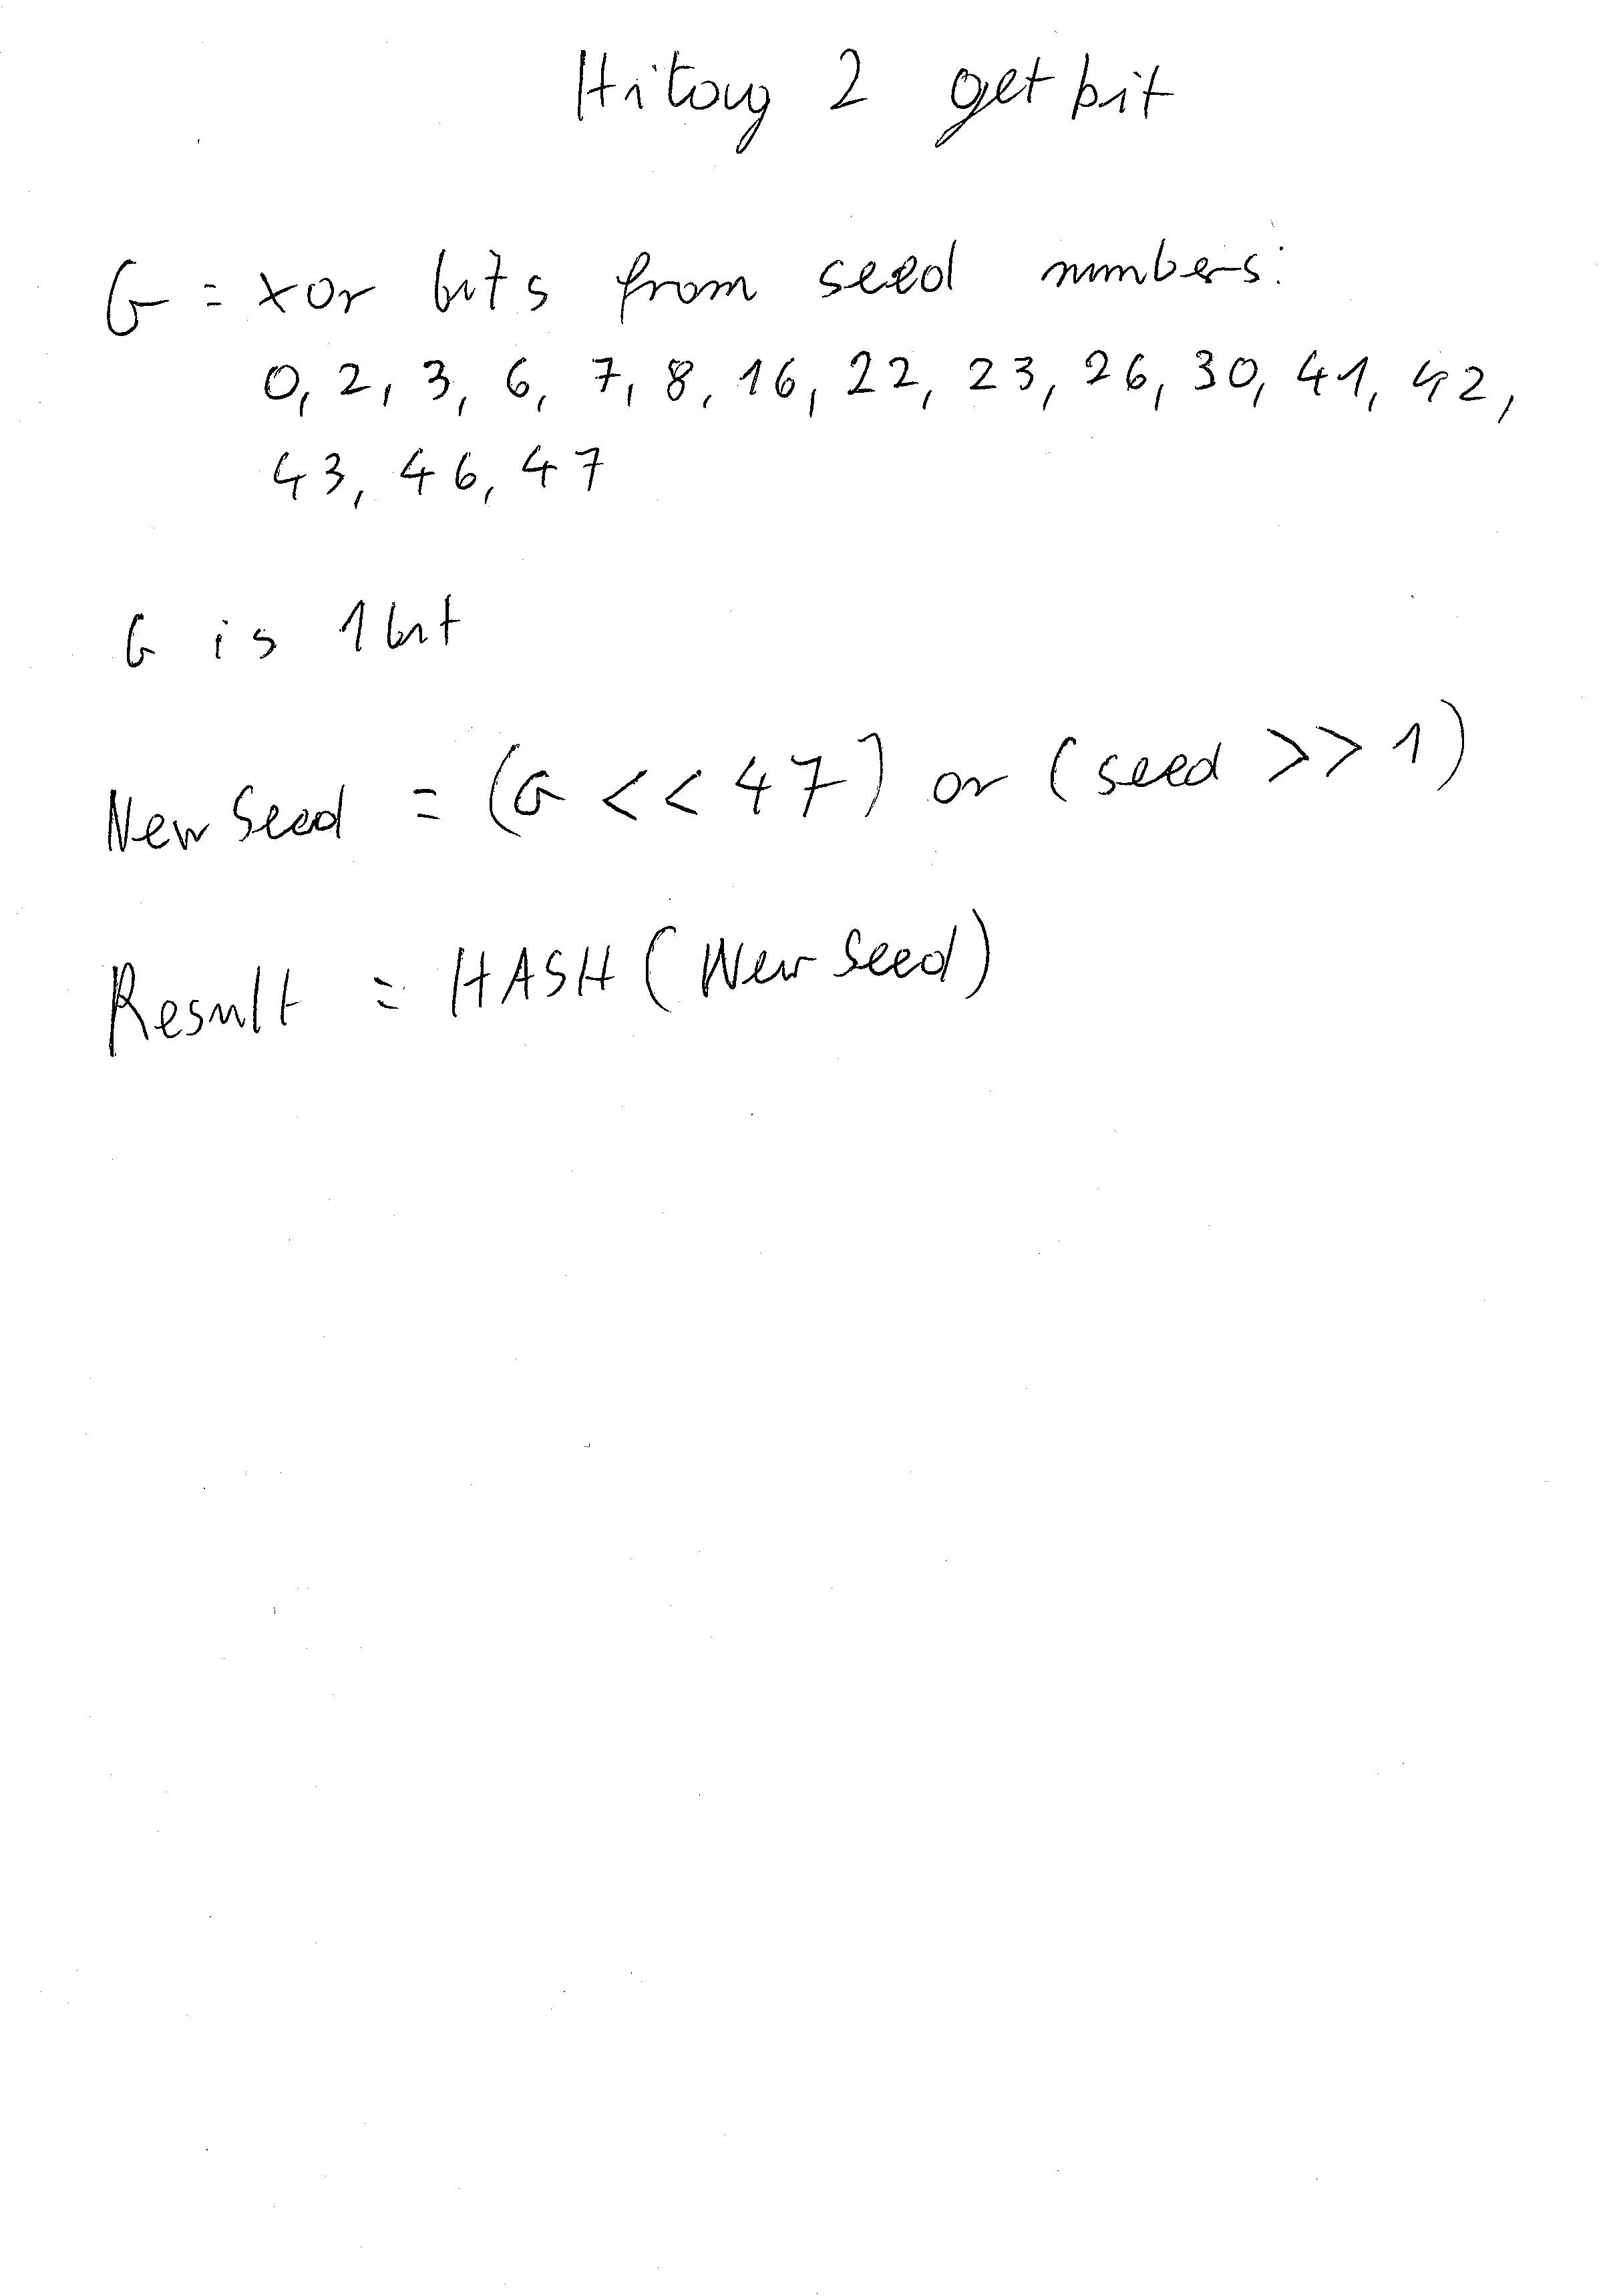 Hitag 2 get bit
G = xor bits from seed numbers:
0, 2, 3, 6, 7, 8, 16, 22, 23, 26, 30, 41, 42,
43, 46, 47
G is 1 bit
New Seed = (G << 47) or (seed >> 1)
Result = HASH (New Seed)